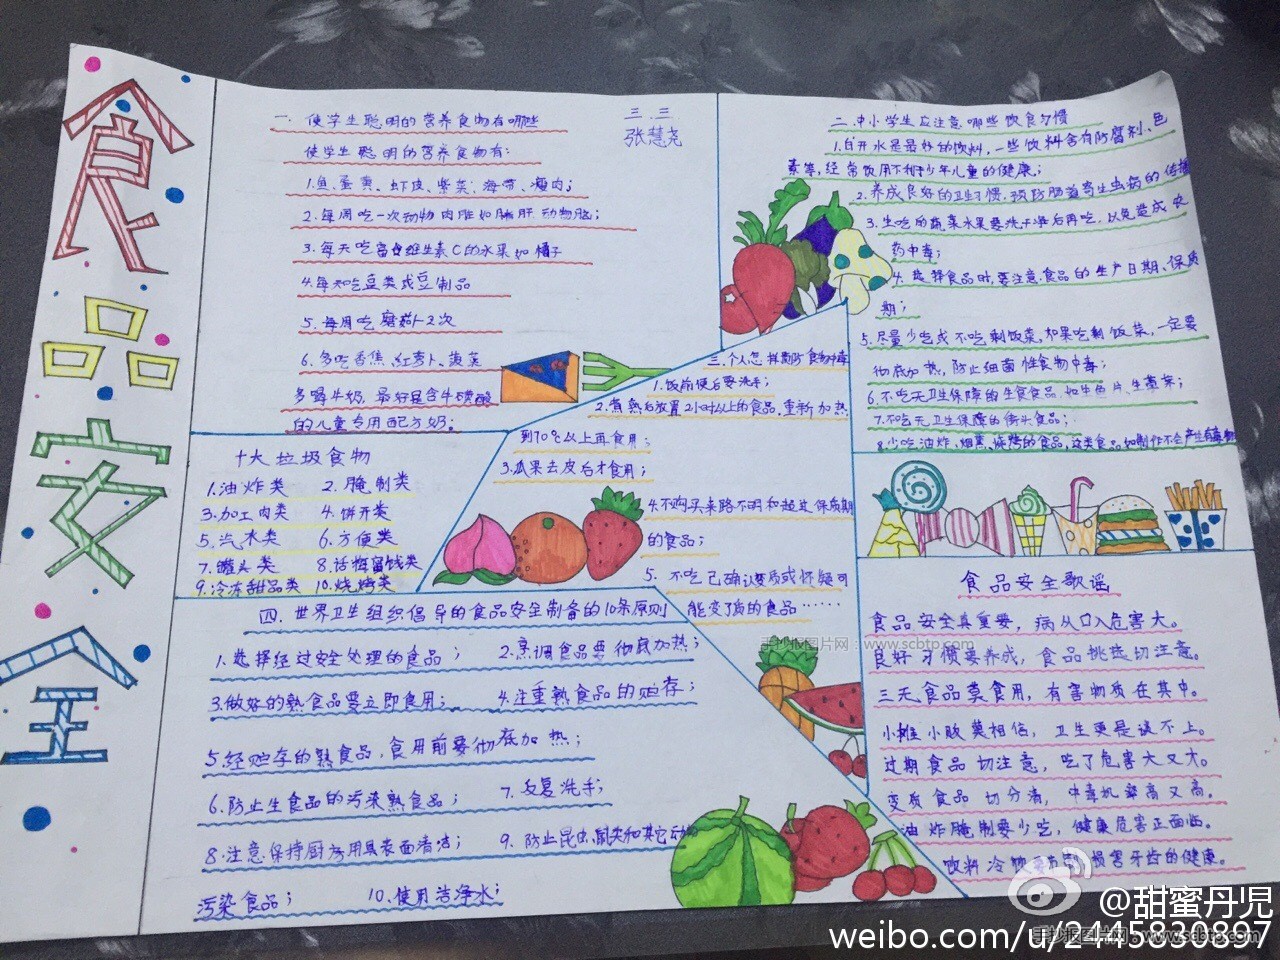 食品安全
三.三
张慧尧
一. 使学生聪明的营养食物有哪些
使学生聪明的营养食物有:
1.鱼、蛋黄、虾皮、紫菜、海带、瘦肉;
2.每周吃一次动物内脏如猪肝 动物脑;
3.每天吃富含维生素C的水果如橘子
4.每天吃豆类或豆制品
5.每周吃蘑菇1-2次
6.多吃香焦、红萝卜、菠菜
多喝牛奶,最好是含牛磺酸
的儿童专用配方奶。
二.中小学生应注意哪些饮食习惯
1.白开水是最好的饮料,一些饮料含有防腐剂、色
素等,经常饮用不利于少年儿童的健康;
2.养成良好的卫生习惯,预防肠道寄生虫病的传播
3.生吃的蔬菜水果要洗干净后再吃,以免造成农
药中毒;
4.选择食品时,要注意食品的生产日期、保质
期;
5.尽量少吃或不吃剩饭菜,如果吃剩饭菜,一定要
彻底加热,防止细菌性食物中毒;
6.不吃无卫生保障的生食食品,如生鱼片、生
7.不吃无卫生保障的街头食品;
8.少吃油炸、烟熏、烧烤的食品,这类食品如制作不
三.个人怎样预防食物中毒
1.饭前便后要洗手;
2.煮熟后放置2小时以上的食品,重新加热
到70℃以上再食用;
3.瓜果去皮后才食用;
4.不购买来路不明和超过保质期
的食品;
5. 不吃已确认变质或怀疑可
能变了质的食品……
十大垃圾食物
1.油炸类 2.腌制类
3.加工肉类 4.饼干类
5.汽水类 6.方便类
7.罐头类 8.话梅蜜饯类
9.冷冻甜品类 10.烧烤类
四.世界卫生组织倡导的食品安全制备的10条原则
1.选择经过安全处理的食品; 2.烹调食品要彻底加热;
3.做好的熟食品要立即食用; 4.注重熟食品的贮存;
5.经贮存的熟食品,食用前要彻底加热;
6.防止生食品的污染熟食品; 7.反复洗手;
8.注意保持厨房用具表面清洁; 9.防止昆虫、鼠类和其它动物
污染食品; 10.使用洁净水;
食品安全歌谣
食品安全真重要,病从口入危害大。
良好习惯要养成,食品挑选切注意。
三无食品莫食用,有害物质在其中。
小摊小贩莫相信,卫生更是谈不上。
过期食品切注意,吃了危害大又大。
变质食品切分清,中毒机率高又高。
油炸腌制要少吃,健康危害正面临。
饮料冷饮 损害牙齿的健康。
手抄报图片网:www.scbtp.com
@甜蜜丹児
weibo.com/u/2445830897
手抄报图片网:www.scbtp.com